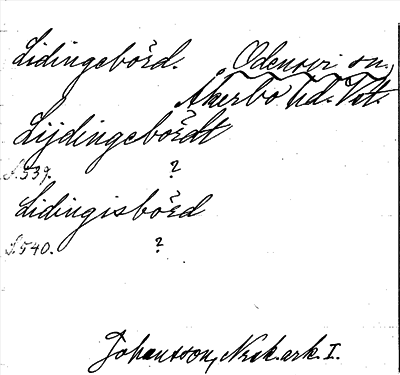 Lidingebörd. Odensvi sn,
Åkerbo hd. Vstm.
Lijdingebördt
S. 539. ?
Lidingisbörd
S. 540. ?
Johansson, Nock.ark. I.